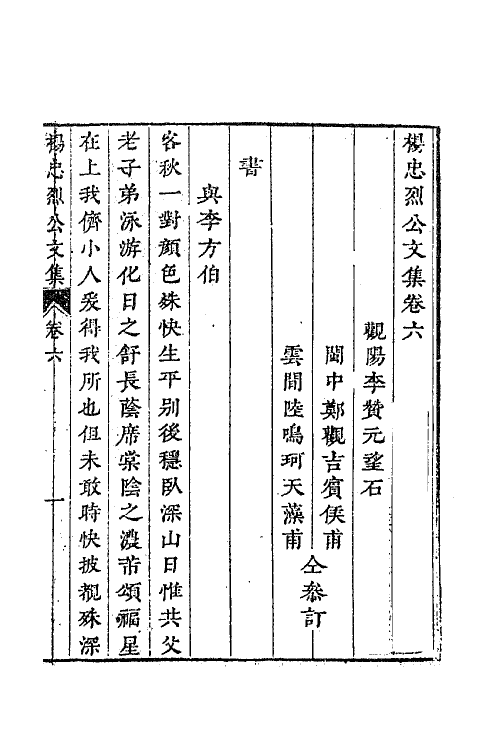 楊忠烈公文集卷六
觀陽李贊元望石
閩中鄭觀吉賓侯甫
雲間陸鳴珂天藻甫
仝叅訂
書
與李方伯
客秋一對顏色殊快生平别後穩臥深山日惟共父
老子弟泳游化日之舒長蔭席棠陰之濃芾頌福星
在上我儕小人爰得我所也但未敢時快披覩殊深
楊忠烈公文集
卷六
一